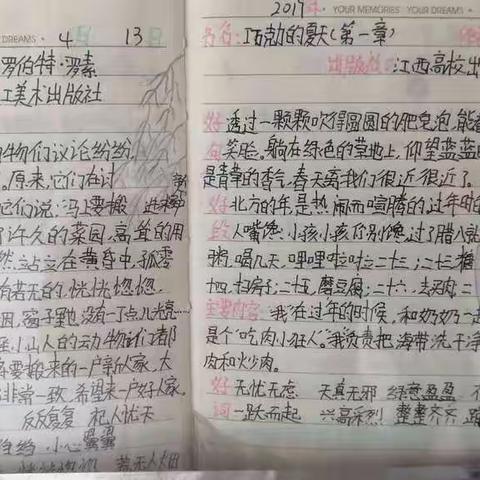 DREAMS
4月 13日
罗伯特·罗素
江美术出版社
物们议论纷纷,
。原来,它们在讨
它们说:"马上要搬 进来
了许久的菜园,高耸的用
然站立在黄昏中,孤零
有若无的,恍恍惚惚,
因,窗子里也没有一点儿光亮……
小山人的动物他们都
要搬来的一户新人家,大
非常一致,希望来一户好人家。
反反复复 杞人忧天
小心翼翼
若无人烟
2017年 YOUR MEMORIES YOUR DREAMS
书名:巧勃的夏天(第一章)
出版社:江西高校出
好 透过一颗颗吹得圆圆的肥皂泡,能看
句 笑脸。躺在绿色的草地上,仰望蓝蓝
是青草的香气,春天离我们很近很近了。
好 北方的年是热闹而喧腾的过年时
段 人嘴馋,小孩小孩你别馋,过了腊八就
粥,喝几天,哩哩啦啦二十三;二十三糖
十四,扫房子;二十五,磨豆腐;二十六,去买肉;二
主要内容:我在过年的时候,和奶奶一起
是个"吃肉小狂人"。我负责把海带洗干净
肉和火少肉。
好 无忧无虑 天真无邪 绿意盈盈 不
词 一跃而起 兴高采烈 整整齐齐